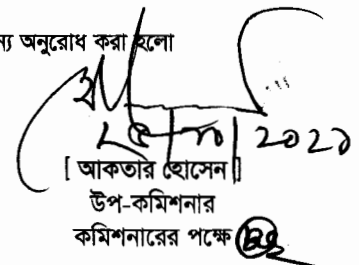 ন্য অনুরোধ করা হলো
২০২১
[ আকতার হোসেন ]
উপ-কমিশনার
কমিশনারের পক্ষে